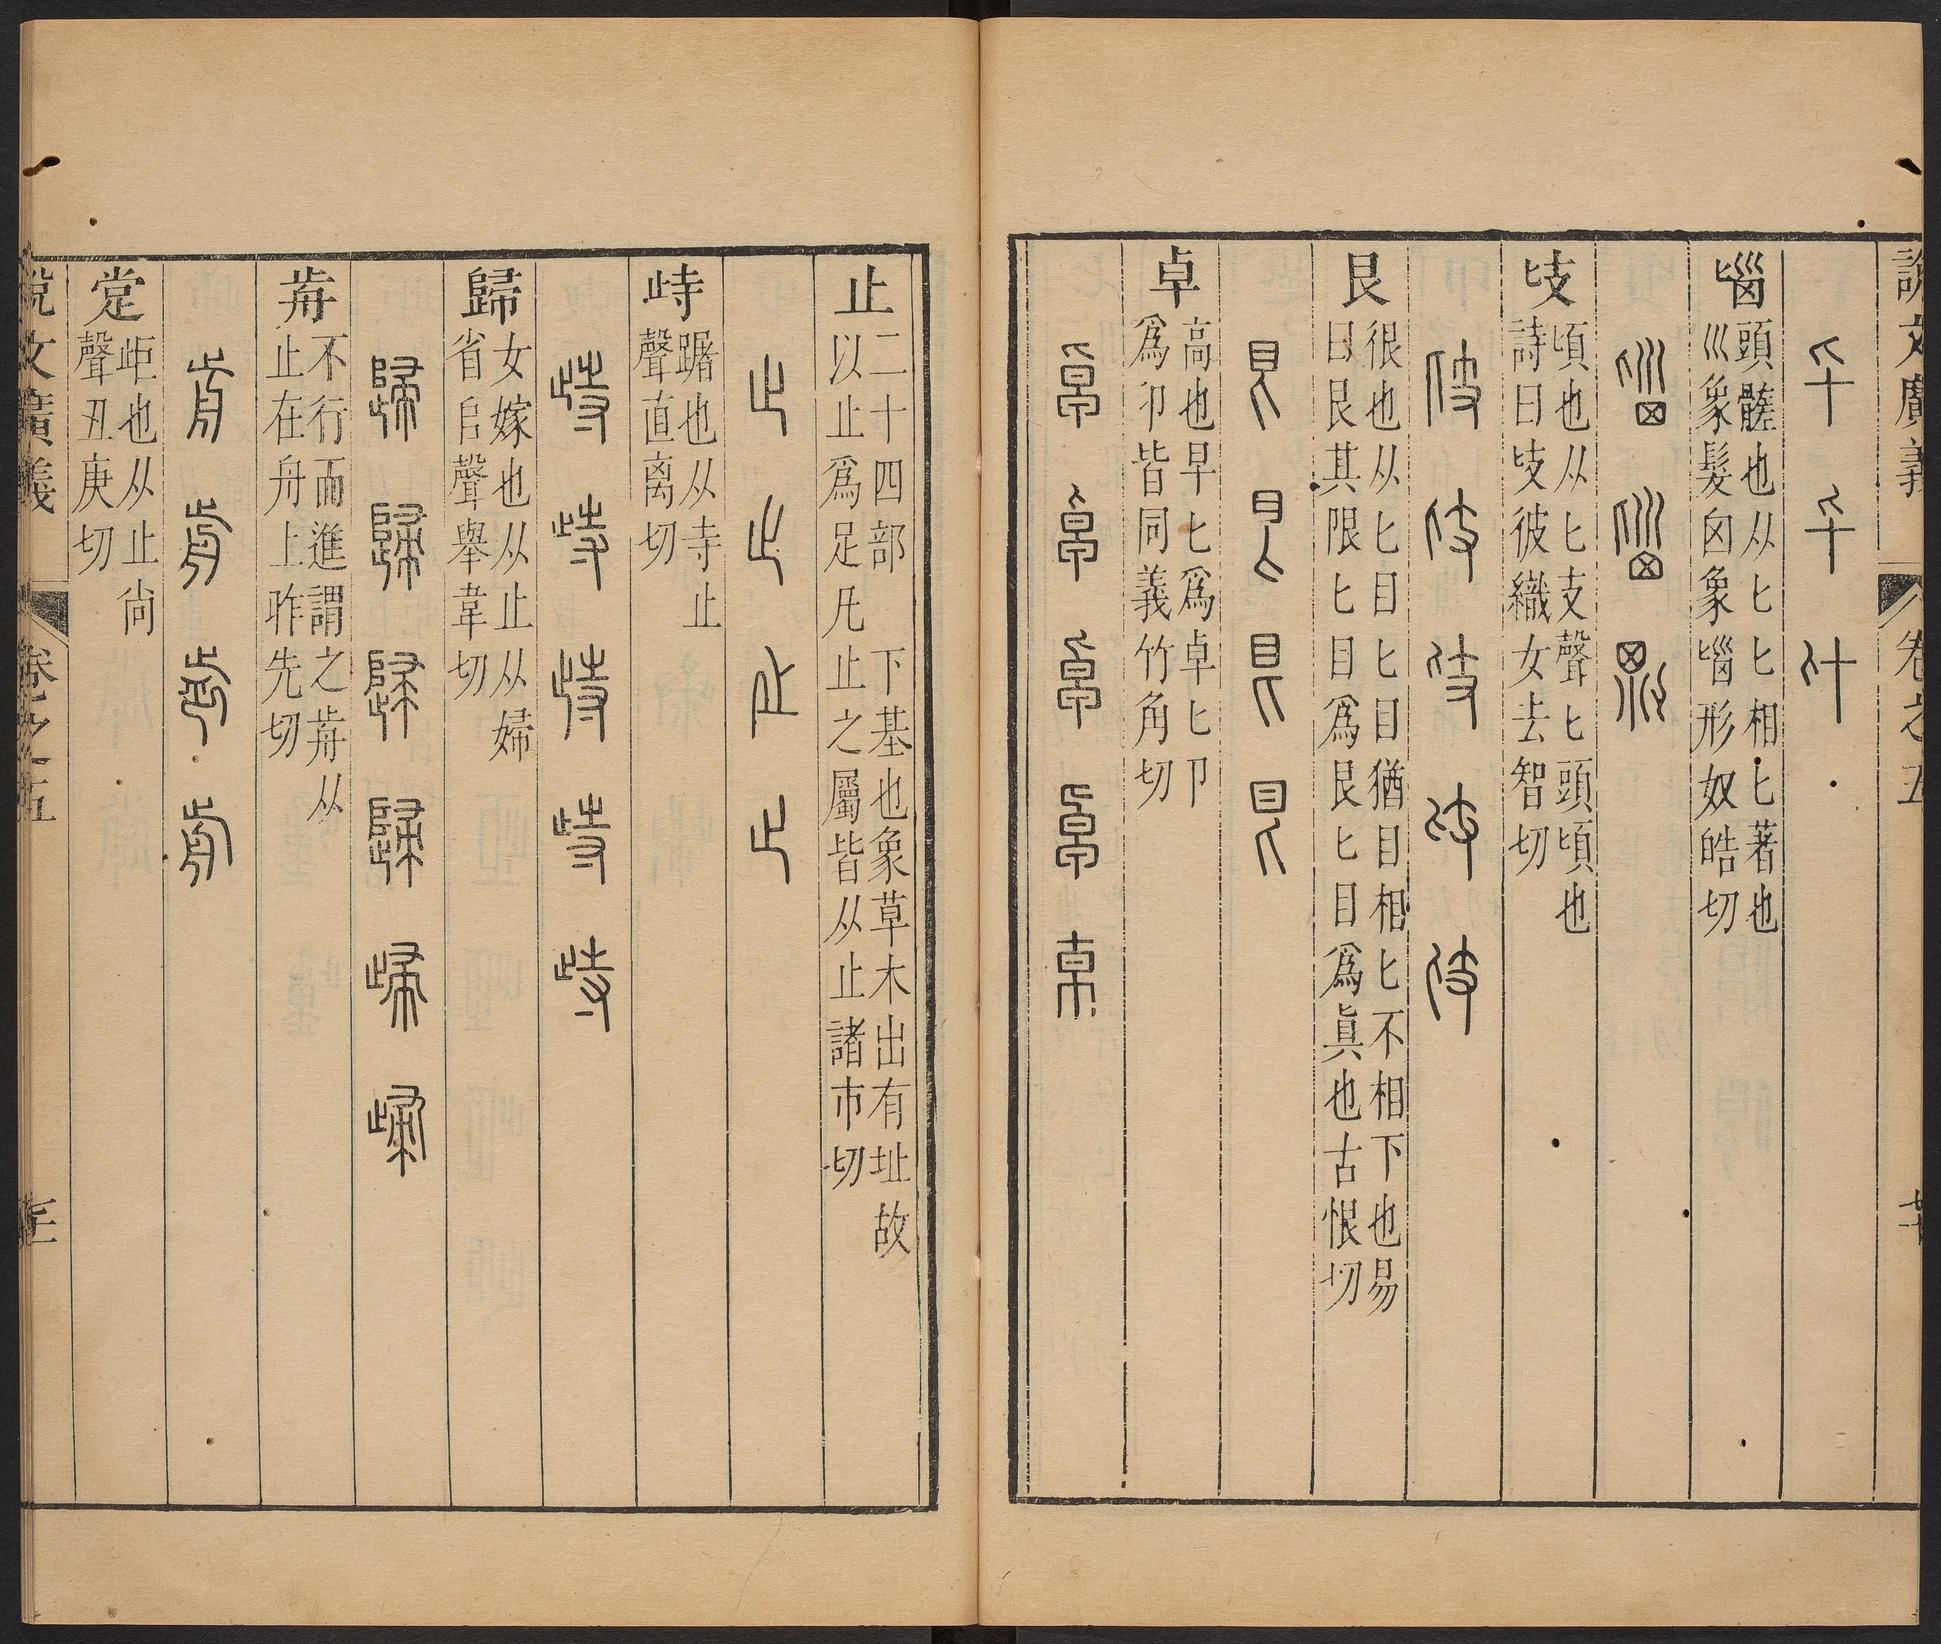 說文廣義 卷之五
𠦂 𠦂 𠦂
匘
頭髓也从匕匕相匕著也
巛象髮囟象匘形奴皓切
匘 匘 匘
𠤗
頃也从匕支聲匕頭頃也
詩曰𠤗彼織女去智切
𠤗 𠤗 𠤗 𠤗 𠤗
艮
很也从匕目匕目猶目相匕不相下也易
曰艮其限匕目爲艮匕目爲眞也古恨切
艮 艮 艮 艮
卓
高也早匕爲卓匕卩
爲卬皆同義竹角切
卓 卓 卓 卓 卓
止
二十四部 下基也象草木出有址故
以止爲足凡止之屬皆从止諸市切
止 止 止 止
峙
踞也从寺止
聲直离切
峙 峙 峙 峙 峙
歸
女嫁也从止从婦
省𠂤聲舉韋切
歸 歸 歸 歸 歸 歸
歬
不行而進謂之歬从
止在舟上昨先切
歬 歬 歬 歬
㲋
歫也从止尙
聲丑庚切
說文廣義 卷之五